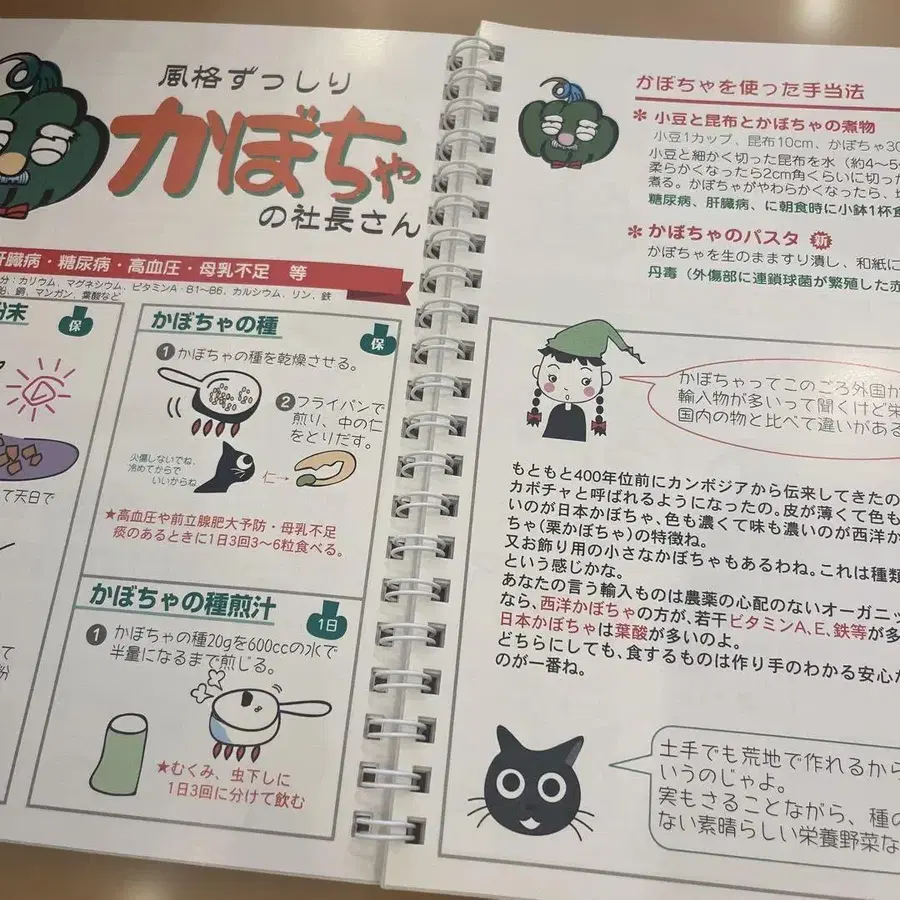 風格ずっしり
かぼちゃ
の社長さん
肝臓病・糖尿病・高血圧・母乳不足 等
分：カリウム、マグネシウム、ビタミンA・B1〜B6、カルシウム、リン、鉄
鉛、銅、マンガン、葉酸など
粉末
保
て天日で
て
粉
かぼちゃの種
保
1 かぼちゃの種を乾燥させる。
2 フライパンで
煎り、中の仁
をとりだす。
火傷しないでね、
冷めてからで
いいからね
仁→
★高血圧や前立腺肥大予防・母乳不足
痰のあるときに1日3回3〜6粒食べる。
かぼちゃの種煎汁
1日
1 かぼちゃの種20gを600ccの水で
半量になるまで煎じる。
★むくみ、虫下しに
1日3回に分けて飲む
かぼちゃを使った手当法
* 小豆と昆布とかぼちゃの煮物
小豆1カップ、昆布10cm、かぼちゃ30
小豆と細かく切った昆布を水（約4〜5
柔らかくなったら2cm角くらいに切った
煮る。かぼちゃがやわらかくなったら、
糖尿病、肝臓病、に朝食時に小鉢1杯食
* かぼちゃのパスタ 新
かぼちゃを生のまますり潰し、和紙に
丹毒（外傷部に連鎖球菌が繁殖した赤
かぼちゃってこのごろ外国か
輸入物が多いって聞くけど栄
国内の物と比べて違いがある
もともと400年位前にカンボジアから伝来してきたの
カボチャと呼ばれるようになったの。皮が薄くて色も
いのが日本かぼちゃ、色も濃くて味も濃いのが西洋か
ちゃ（栗かぼちゃ）の特徴ね。
又お飾り用の小さなかぼちゃもあるわね。これは種類
という感じかな。
あなたの言う輸入ものは農薬の心配のないオーガニッ
なら、西洋かぼちゃの方が、若干ビタミンA、E、鉄等が多
日本かぼちゃは葉酸が多いのよ。
どちらにしても、食するものは作り手のわかる安心な
のが一番ね。
土手でも荒地で作れるから
いうのじゃよ。
実もさることながら、種の
ない素晴らしい栄養野菜な